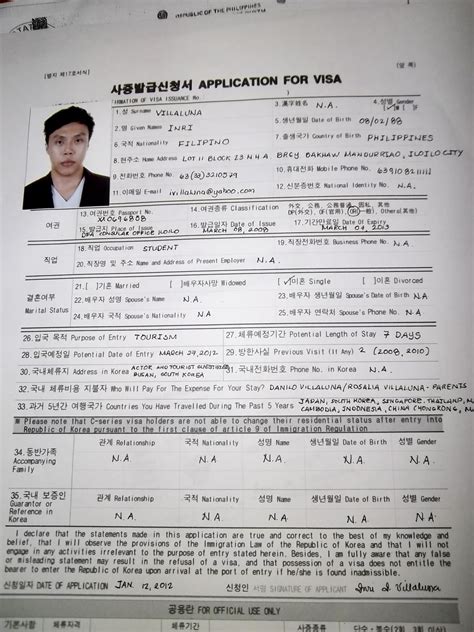 REPUBLIC OF THE PHILIPPINES
[별지 제17호서식]
(앞 쪽)
사증발급신청서 APPLICATION FOR VISA
CONFIRMATION OF VISA ISSUANCE No.
1.성 Surname VILLALUNA
3.漢字姓名 N.A.
4.성별 Gender [✓]M [ ]F
2.명 Given Names INRI
5.생년월일 Date of Birth 08/02/88
6.국적 Nationality FILIPINO
7.출생국가 Country of Birth PHILIPPINES
8.현주소 Home Address LOT 11 BLOCK 13 NHA BRGY BAKHAW MANDURRIAO, ILOILO CITY
9.전화번호 Phone No. 63(33)3210529
10.휴대전화 Mobile Phone No.
11.이메일 E-mail ivillaluna@yahoo.com
12.신분증번호 National Identity No. N.A.
여권
13.여권번호 Passport No. XX0696808
14.여권종류 Classification 외교, 공무, 관용, 일반, 기타
DP(외交), OF(官用), OR(一般), Others(其他)
15.발급지 Place of Issue DFA CONSULAR OFFICE ILOILO
16.발급일자 Date of Issue MARCH 05, 2008
17.기간만료일 Date Of Expiry MARCH 04, 2013
직업
18.직업 Occupation STUDENT
19.직장전화번호 Business Phone No. N.A.
20.직장명 및 주소 Name and Address of Present Employer N.A.
결혼여부
Marital Status
21.[ ]기혼 Married [ ]배우자사망 Widowed [✓]미혼 Single [ ]이혼 Divorced
22.배우자 성명 Spouse's Name N.A.
23.배우자 생년월일 Spouse's Date of Birth N.A.
24.배우자 국적 Spouse's Nationality N.A
25.배우자 연락처 Spouse's Phone No. N.A.
26.입국 목적 Purpose of Entry TOURISM
27.체류예정기간 Potential Length of Stay 7 DAYS
28.입국예정일 Potential Date of Entry MARCH 29, 2012
29.방한사실 Previous Visit (If Any) 2 (2008, 2010)
30.국내체류지 Address in Korea ACTOR AND TOURIST GUESTHOUSE BUSAN, SOUTH KOREA
31.국내전화번호 Phone No. in Korea N.A.
32.국내 체류비용 지불자 Who Will Pay For The Expense For Your Stay? DANILO VILLALUNA/ROSALIA VILLALUNA - PARENTS
33.과거 5년간 여행국가 Countries You Have Travelled During The Past 5 Years JAPAN, SOUTH KOREA, SINGAPORE, THAILAND,
CAMBODIA, INDONESIA, CHINA (HONGKONG,
※ Please note that C-series visa holders are not able to change their residential status after entry into
Republic of Korea pursuant to the first clause of article 9 of Immigration Regulation
34.동반가족
Accompanying
Family
관계 Relationship 국적 Nationality 성명 Name 생년월일 Date of Birth 성별 Gender
N.A N.A N.A N.A N.A
35.국내 보증인
Guarantor or
Reference in
Korea
관계 Relationship 국적 Nationality 성명 Name 생년월일 Date of Birth 성별 Gender
N.A N.A N.A N.A N.A
I declare that the statements made in this application are true and correct to the best of my knowledge and
belief, that I will observe the provisions of the Immigration Law of the Republic of Korea and that I will not
engage in any activities irrelevant to the purpose of entry stated herein. Besides, I am fully aware that any false
or misleading statement may result in the refusal of a visa, and that possession of a visa does not entitle the
bearer to enter the Republic of Korea upon arrival at the port of entry if he/she is found inadmissible.
신청일자 DATE OF APPLICATION JAN. 12, 2012
신청인 서명 SIGNATURE OF APPLICANT Inri D. Villaluna
공용란 FOR OFFICIAL USE ONLY
기본사항 체류자격 체류기간